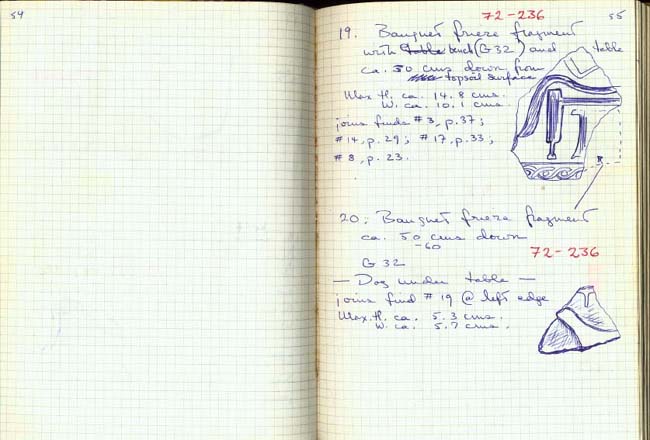 54
72-236
55
19. Banquet frieze fragment
with bench (G 32) and table
ca. 50 cms down from
topsoil surface
Max H. ca. 14.8 cms.
W. ca. 10.1 cms.
joins finds #3, p.37;
#14, p.29; #17, p.33;
#8, p.23.
20: Banquet frieze fragment
ca. 50 cms down
-60
72-236
G 32
— Dog under table —
joins find #19 @ left edge
Max. H. ca. 5.3 cms.
W. ca. 5.7 cms.